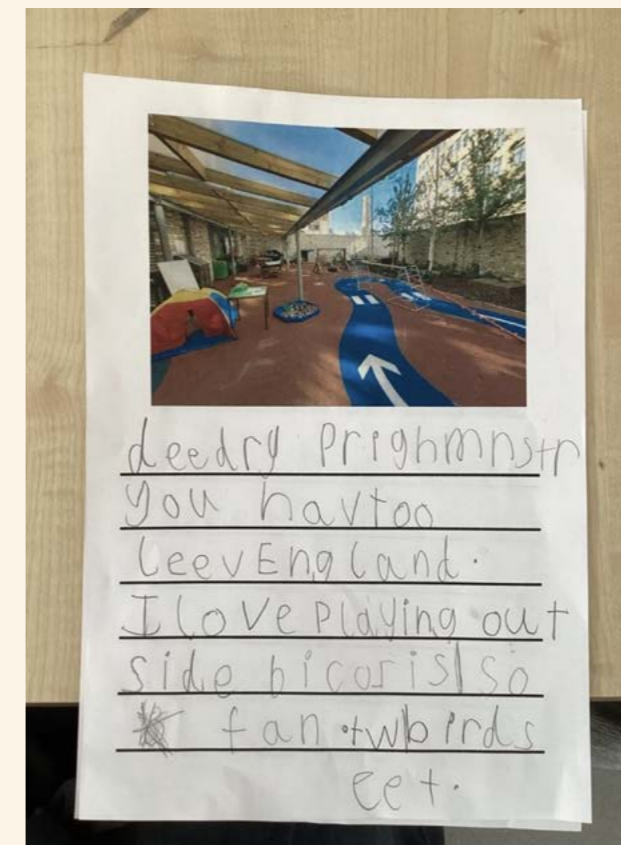 deedry prighmnstr
you havtoo
leevEngland.
I love playing out
side bicorisIso
fan.twbirds
eet.